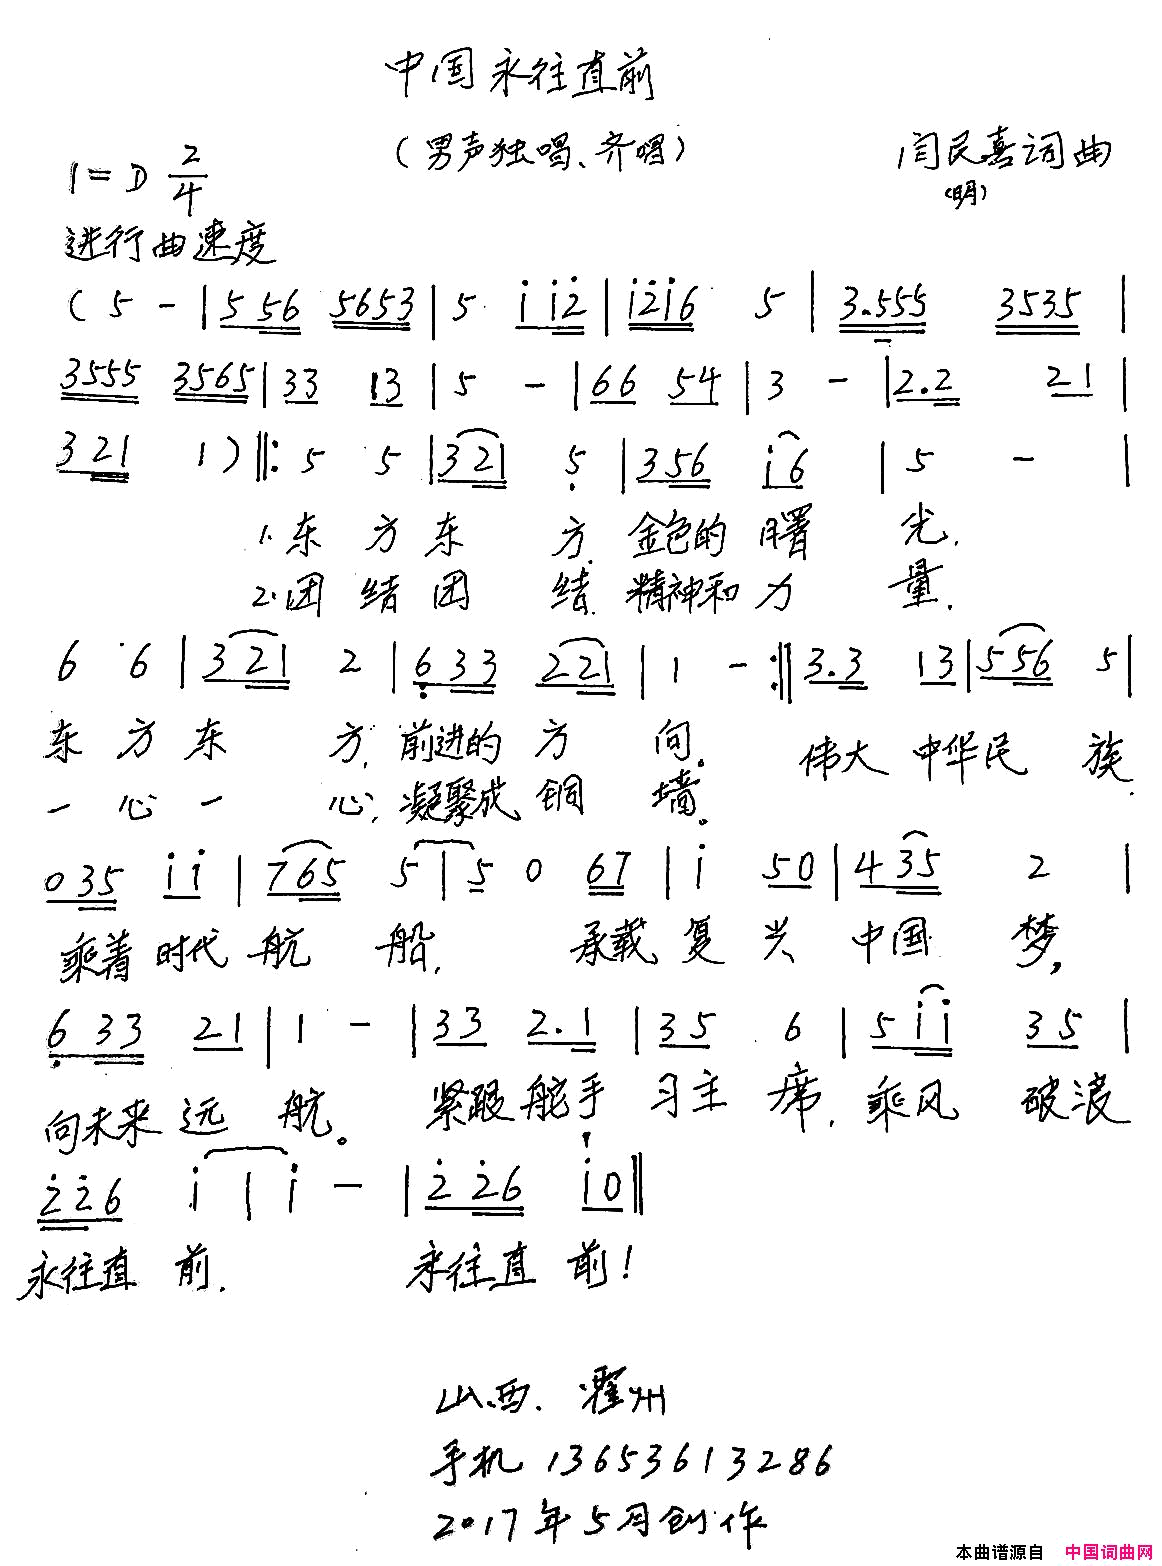 中国永往直前
(男声独唱、齐唱)
闫民喜词曲
(明)
1=D 2/4
进行曲速度
(5 - | 5 56 5653 | 5 i i2 | i2i6 5 | 3.555 3535 |
3555 3565 | 33 13 | 5 - | 66 54 | 3 - | 2.2 21 |
3 21 1) ‖: 5 5 | 3 21 5 | 3 56 i6 | 5 - |
1.东方东方,金色的曙光,
2.团结团结,精神和力量,
6 6 | 3 21 2 | 6 33 2 21 | 1 - :‖ 3.3 13 | 5 56 5 |
东方东方,前进的方向。 伟大中华民族,
一心一心,凝聚成铜墙。
0 35 ii | 7 65 5 | 5 0 67 | i 50 | 4 35 2 |
乘着时代航船, 承载复兴中国梦,
6 33 21 | 1 - | 33 2.1 | 35 6 | 5 ii 35 |
向未来远航。 紧跟舵手习主席,乘风破浪
226 i | i - | 2 26 i0 ‖
永往直前, 永往直前!
山西.霍州
手机 13653613286
2017年5月创作
本曲谱源自 中国词曲网